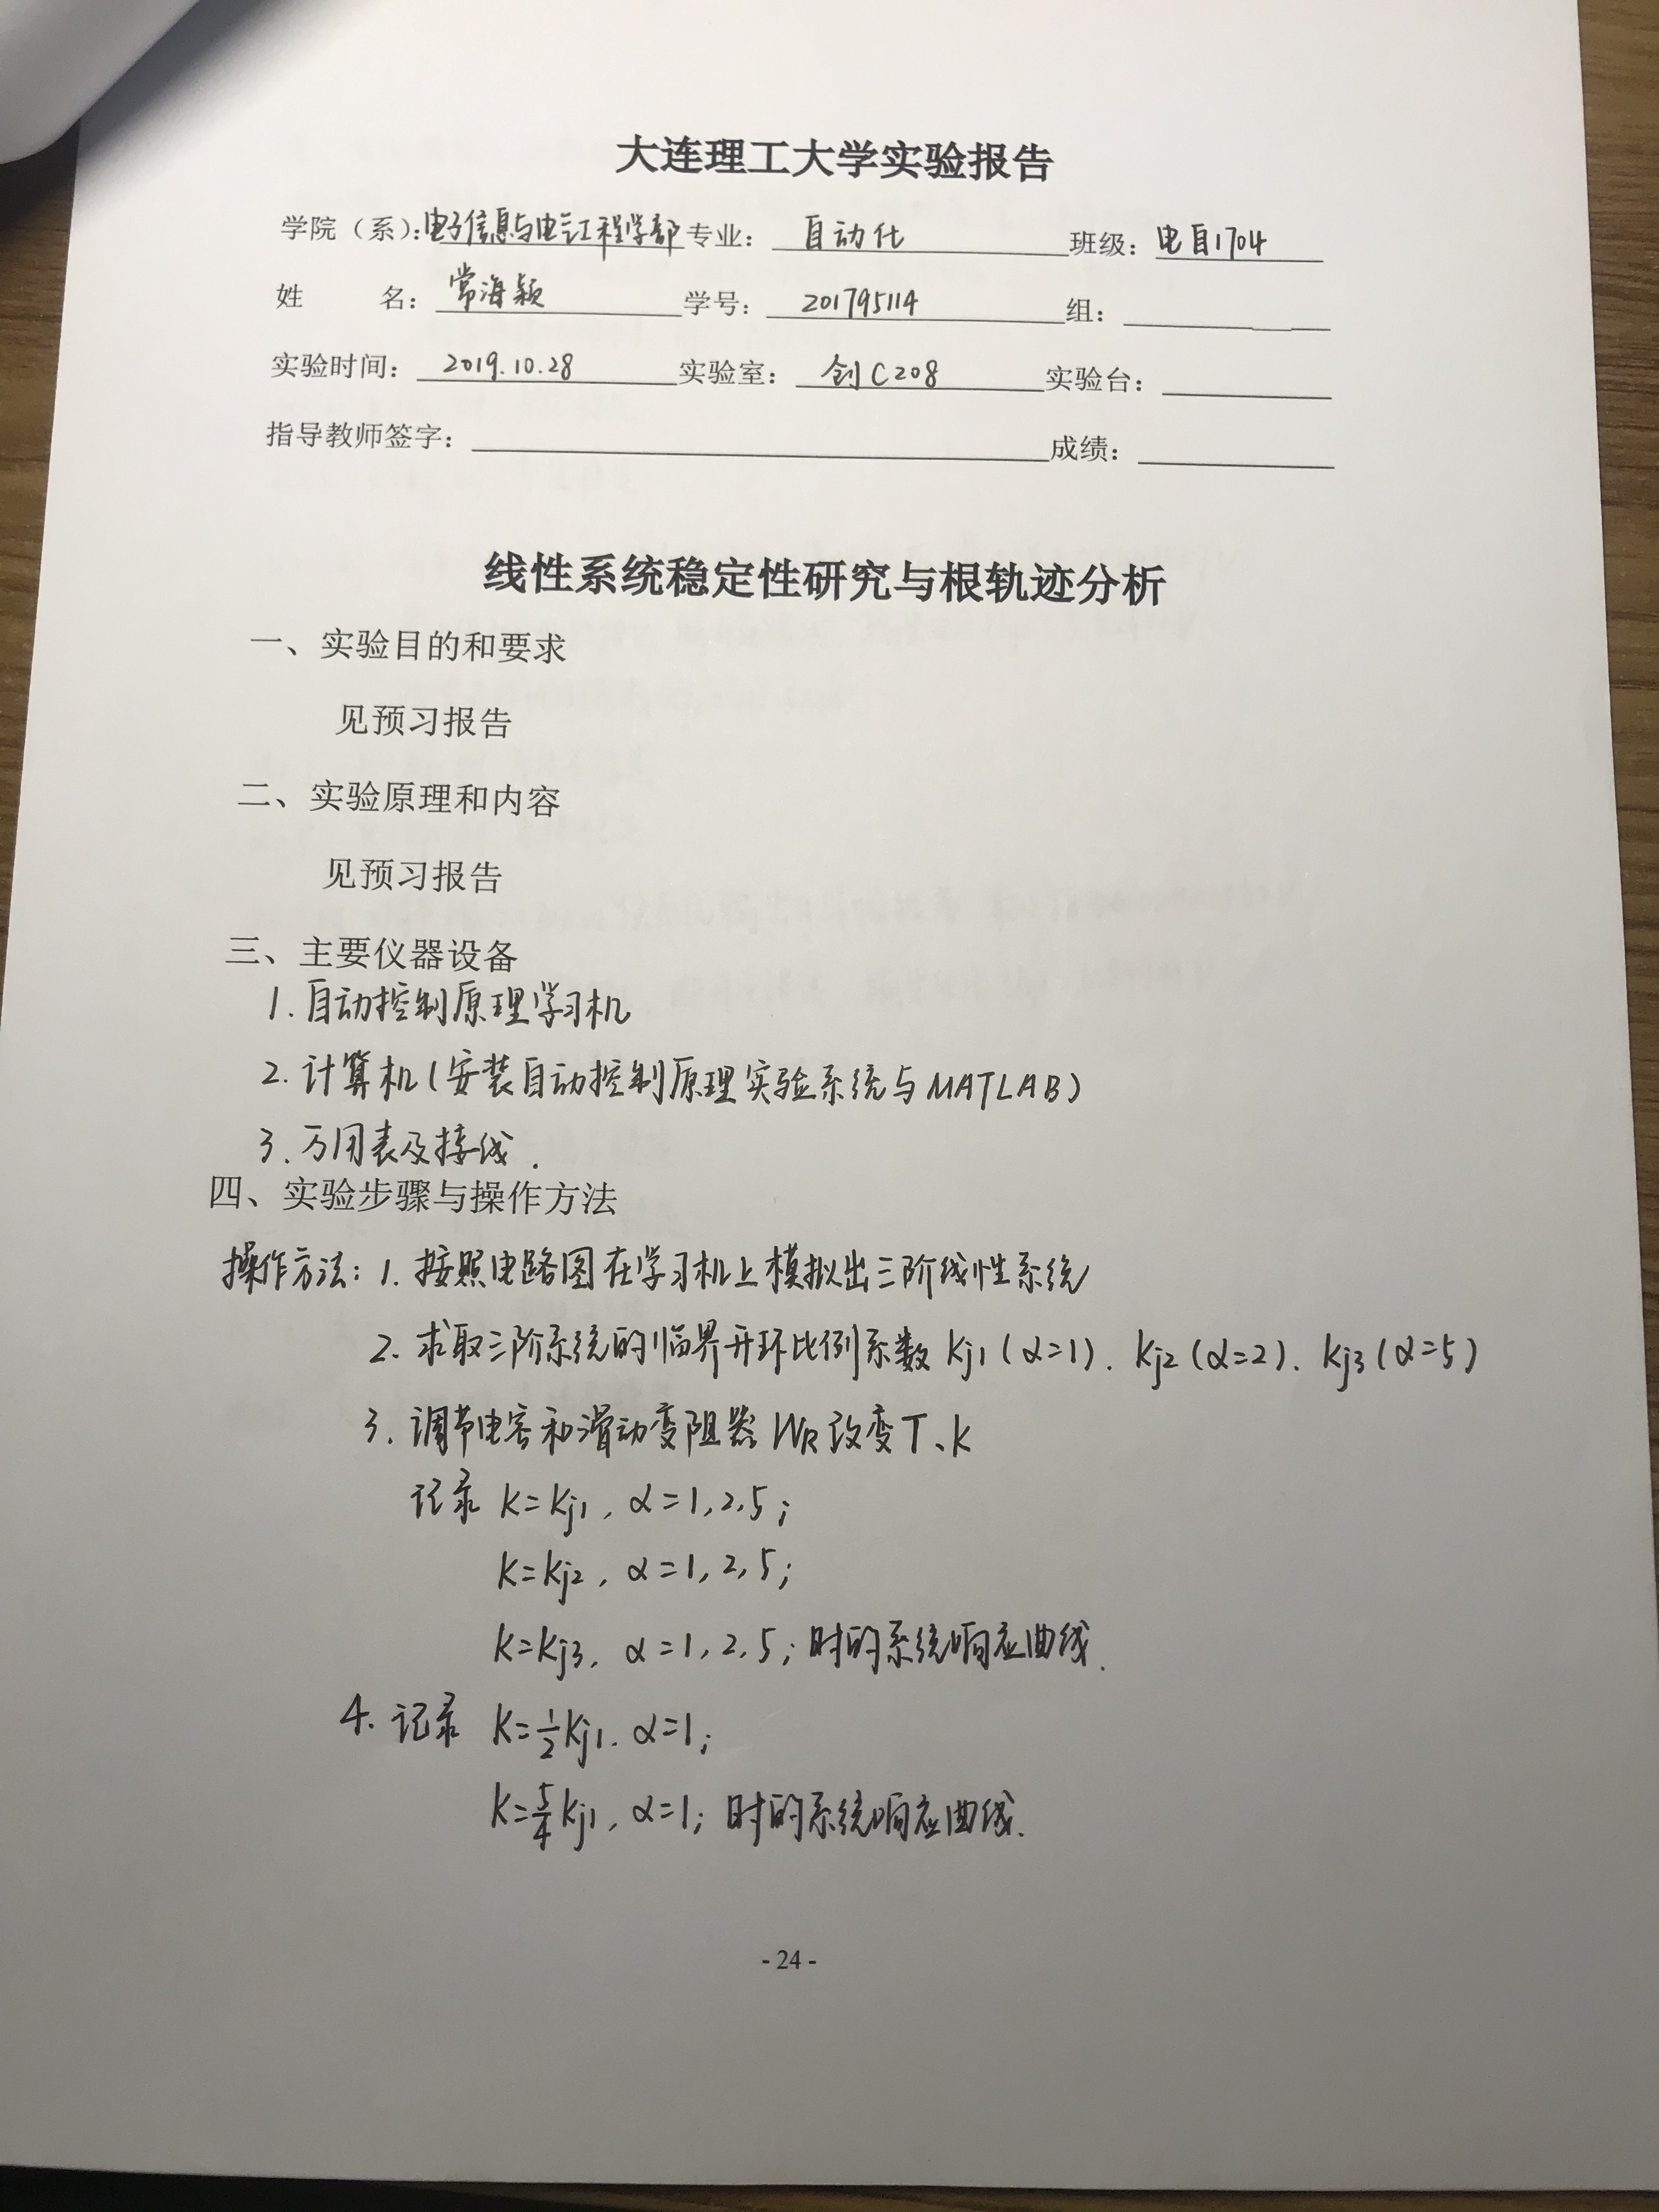 大连理工大学实验报告
学院（系）：电子信息与电气工程学部 专业： 自动化 班级： 电自1704
姓 名： 常海颖 学号： 201795114 组：
实验时间： 2019.10.28 实验室： 创C208 实验台：
指导教师签字： 成绩：
线性系统稳定性研究与根轨迹分析
一、实验目的和要求
见预习报告
二、实验原理和内容
见预习报告
三、主要仪器设备
1. 自动控制原理学习机
2. 计算机(安装自动控制原理实验系统与MATLAB)
3. 万用表及接线.
四、实验步骤与操作方法
操作方法: 1. 按照电路图在学习机上模拟出三阶线性系统
2. 求取三阶系统的临界开环比例系数 Kj1 (α=1). Kj2 (α=2). Kj3 (α=5)
3. 调节电容和滑动变阻器 WR 改变 T、K
记录 K=Kj1, α=1,2,5;
K=Kj2, α=1,2,5;
K=Kj3, α=1,2,5; 时的系统响应曲线.
4. 记录 K=1/2Kj1. α=1;
K=5/4Kj1, α=1; 时的系统响应曲线.
- 24 -